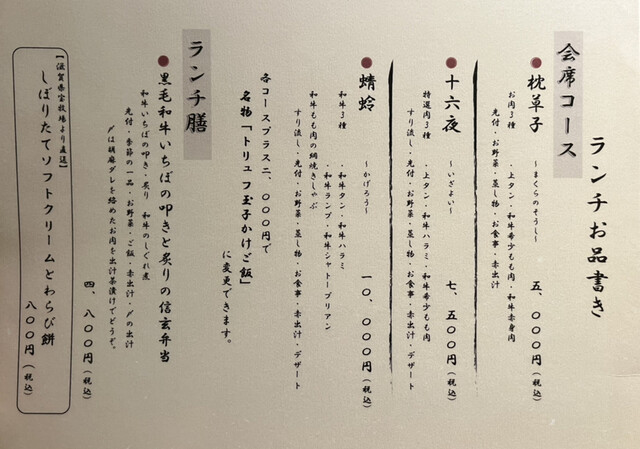 ランチお品書き
会席コース
●枕草子 ～まくらのそうし～ 五、〇〇〇円(税込)
お肉3種 ・上タン・和牛希少もも肉・和牛赤身肉
先付・お野菜・蒸し物・お食事・赤出汁
●十六夜 ～いざよい～ 七、五〇〇円(税込)
特選肉3種 ・上タン・和牛ハラミ・和牛希少もも肉
すり流し・先付・お野菜・蒸し物・お食事・赤出汁・デザート
●蜻蛉 ～かげろう～ 一〇、〇〇〇円(税込)
和牛3種 ・和牛タン・和牛ハラミ
・和牛ランプ・和牛シャトーブリアン
和牛もも肉の網焼きしゃぶ
すり流し・先付・お野菜・蒸し物・お食事・赤出汁・デザート
各コースプラス二、〇〇〇円で
名物「トリュフ玉子かけご飯」
に変更できます。
ランチ膳
●黒毛和牛いちぼの叩きと炙りの信玄弁当
和牛いちぼの叩き・炙り 和牛のしぐれ煮
先付・季節の一品・お野菜・ご飯・赤出汁・〆の出汁
〆は胡麻ダレを絡めたお肉を出汁茶漬けでどうぞ。
四、八〇〇円(税込)
【滋賀県宝牧場より直送】
しぼりたてソフトクリームとわらび餅
八〇〇円(税込)